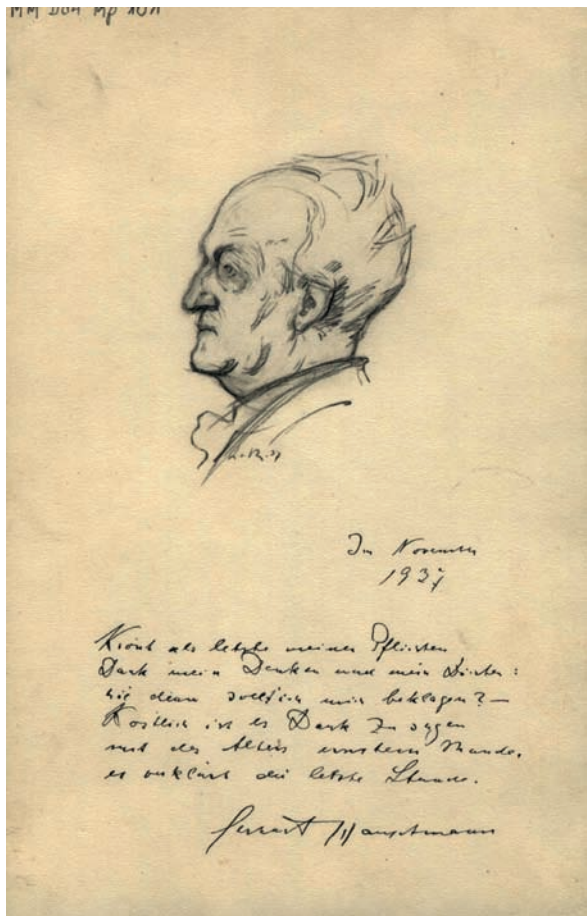 Im November
1937
Krönt als letzte meiner Pflichten
Dank mein Denken und mein Dichten:
wie denn sollt ich mich beklagen? —
Köstlich ist es Dank zu sagen
mit des Alters ernstem Munde,
es verklärt die letzte Stunde.
Gerhart Hauptmann